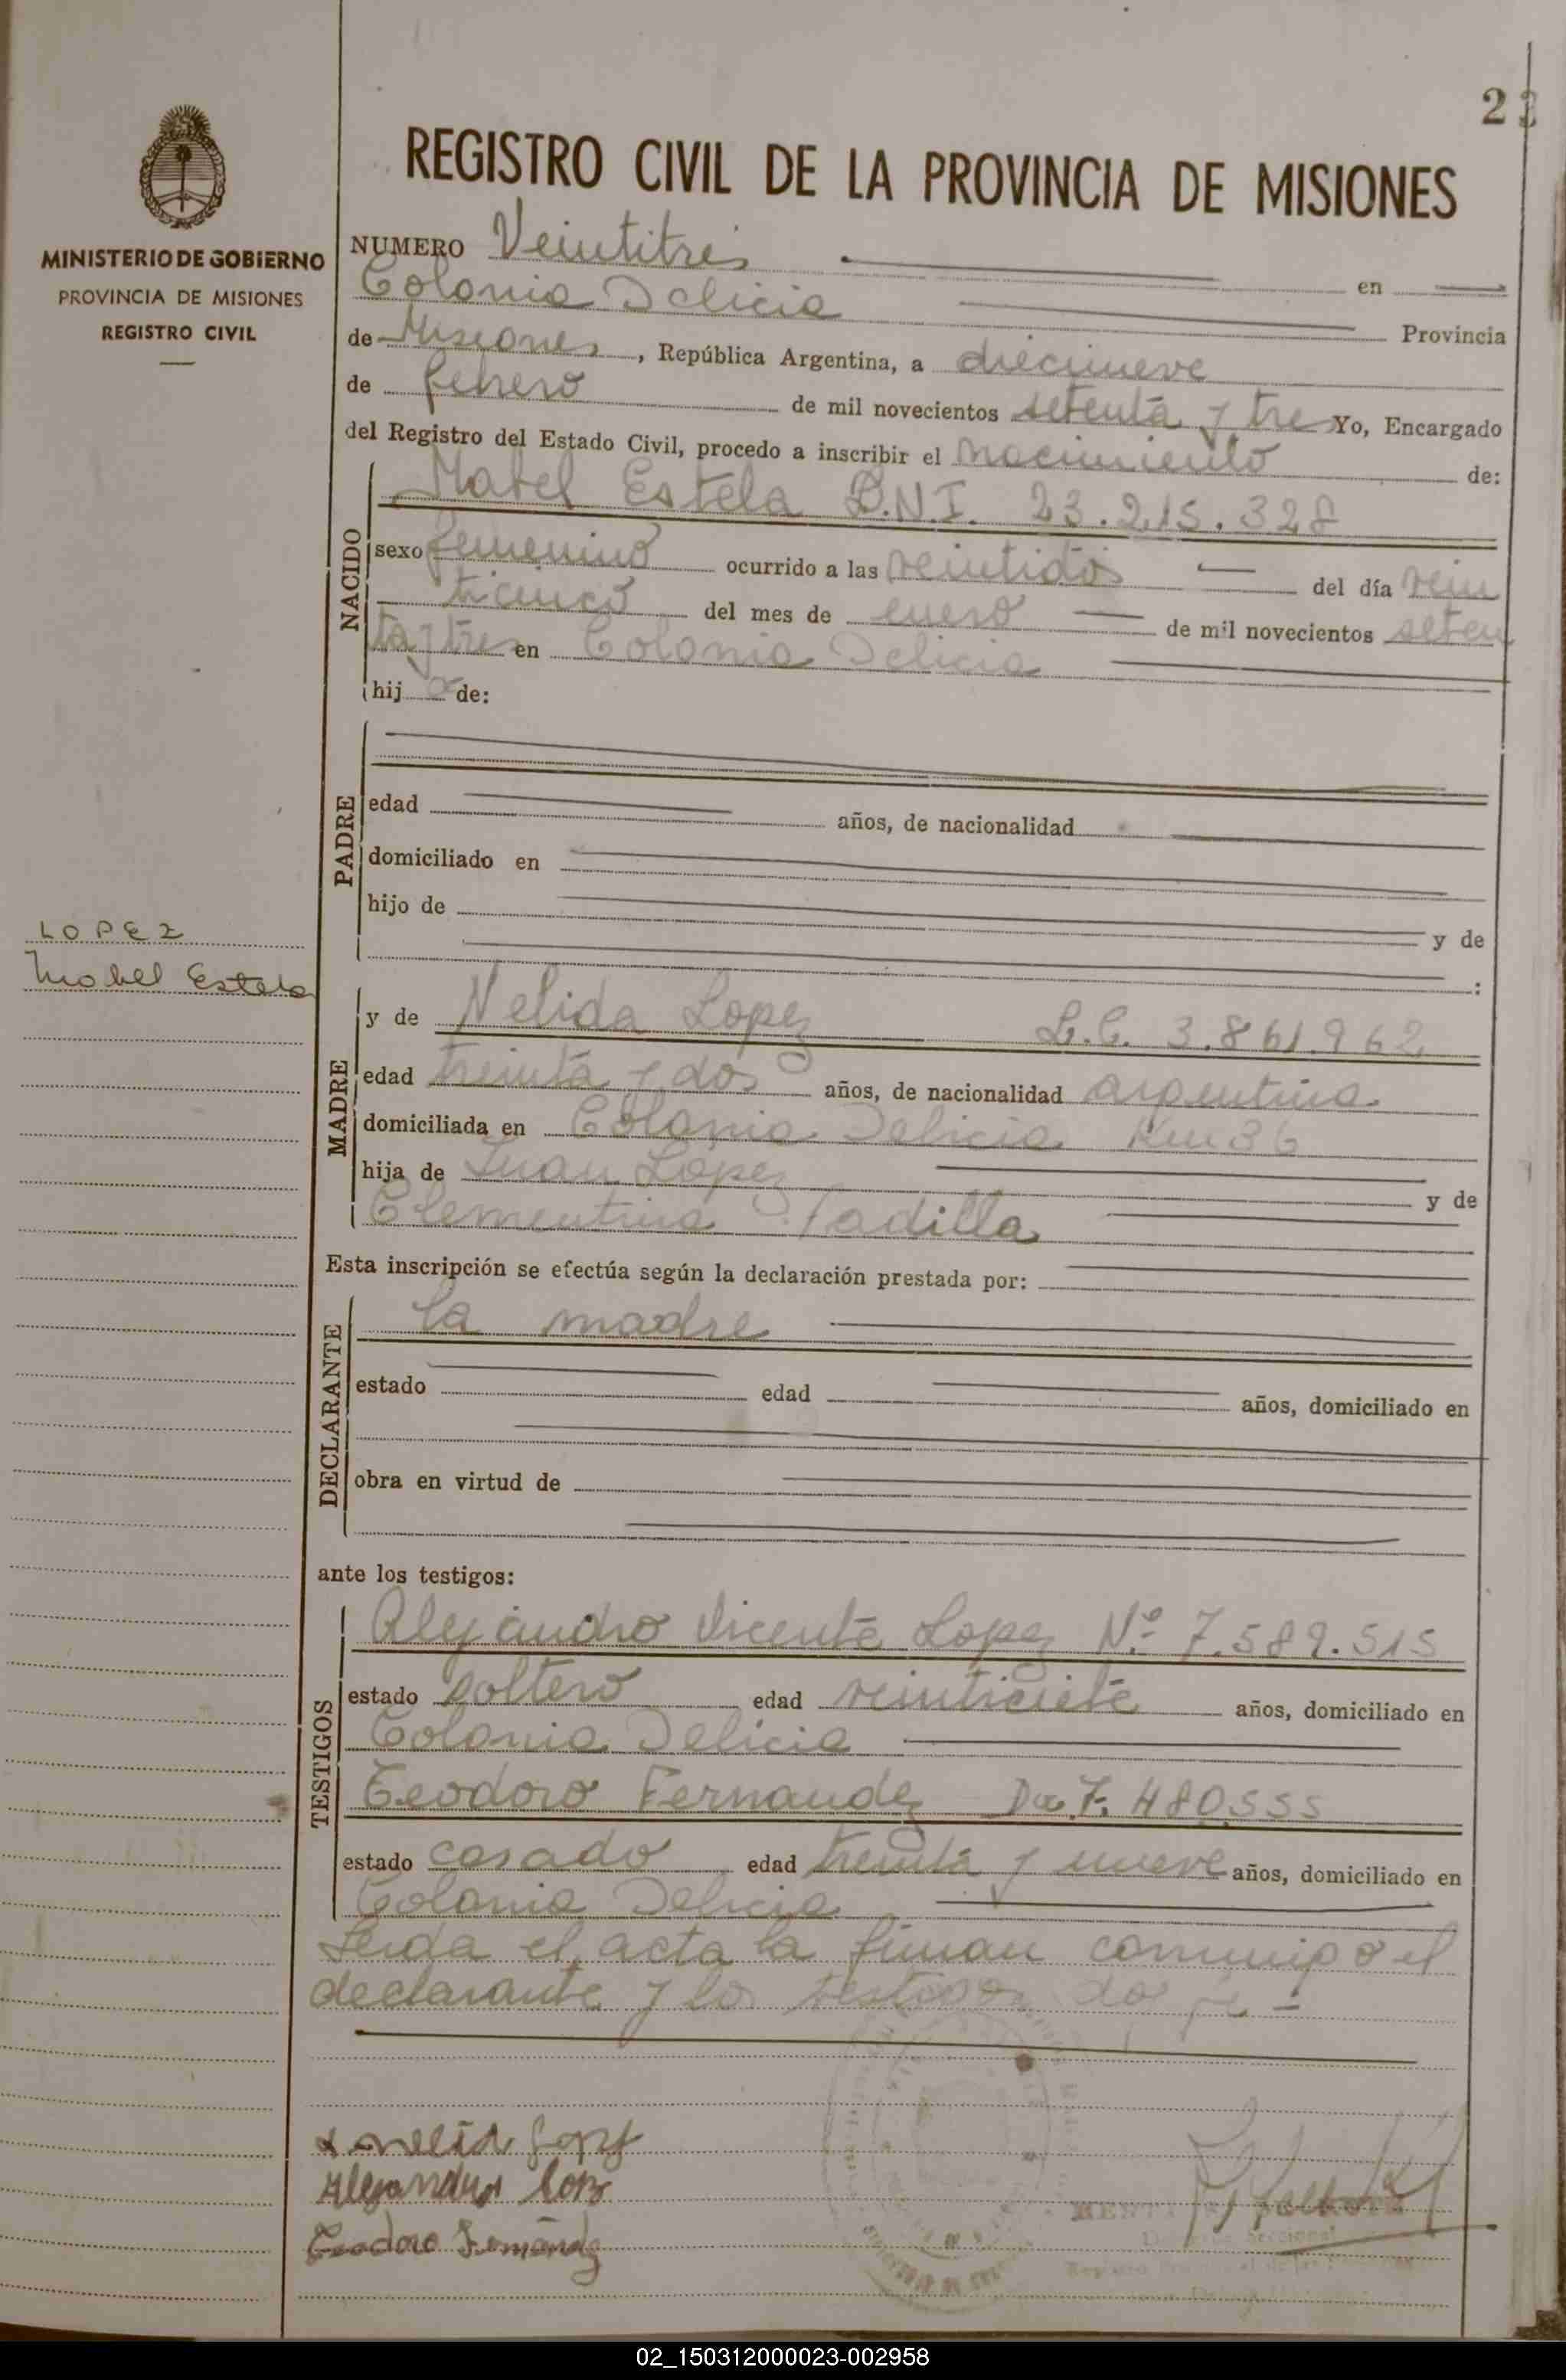 2
REGISTRO CIVIL DE LA PROVINCIA DE MISIONES
MINISTERIO DE GOBIERNO
PROVINCIA DE MISIONES
REGISTRO CIVIL
NUMERO Veintitres en
Colonia Delicia Provincia
de Misiones, República Argentina, a diecinueve
de febrero de mil novecientos setenta y tre Yo, Encargado
del Registro del Estado Civil, procedo a inscribir el nacimiento de:
NACIDO
Mabel Estela D.N.I. 23.215.328
sexo femenino ocurrido a las veintidos del día vein
ticinco del mes de enero de mil novecientos seten
ta y tres en Colonia Delicia
hij a de:
PADRE
edad años, de nacionalidad
domiciliado en
hijo de y de
:
LOPEZ
Mabel Estela
MADRE
y de Nelida Lopez L.C. 3.861.962
edad treinta y dos años, de nacionalidad argentina
domiciliada en Colonia Delicia Km 36
hija de Juan Lopez y de
Clementina Padilla
Esta inscripción se efectúa según la declaración prestada por:
DECLARANTE
la madre
estado edad años, domiciliado en
obra en virtud de
ante los testigos:
TESTIGOS
Alejandro Vicente Lopez Nº 7.589.515
estado soltero edad veinticiete años, domiciliado en
Colonia Delicia
Teodoro Fernandez 7.480.555
estado casado edad treinta y nueve años, domiciliado en
Colonia Delicia
Leida el acta la firman conmigo el
declarante y los testigos doy fe -
Alejandro
Teodoro
02_150312000023-002958